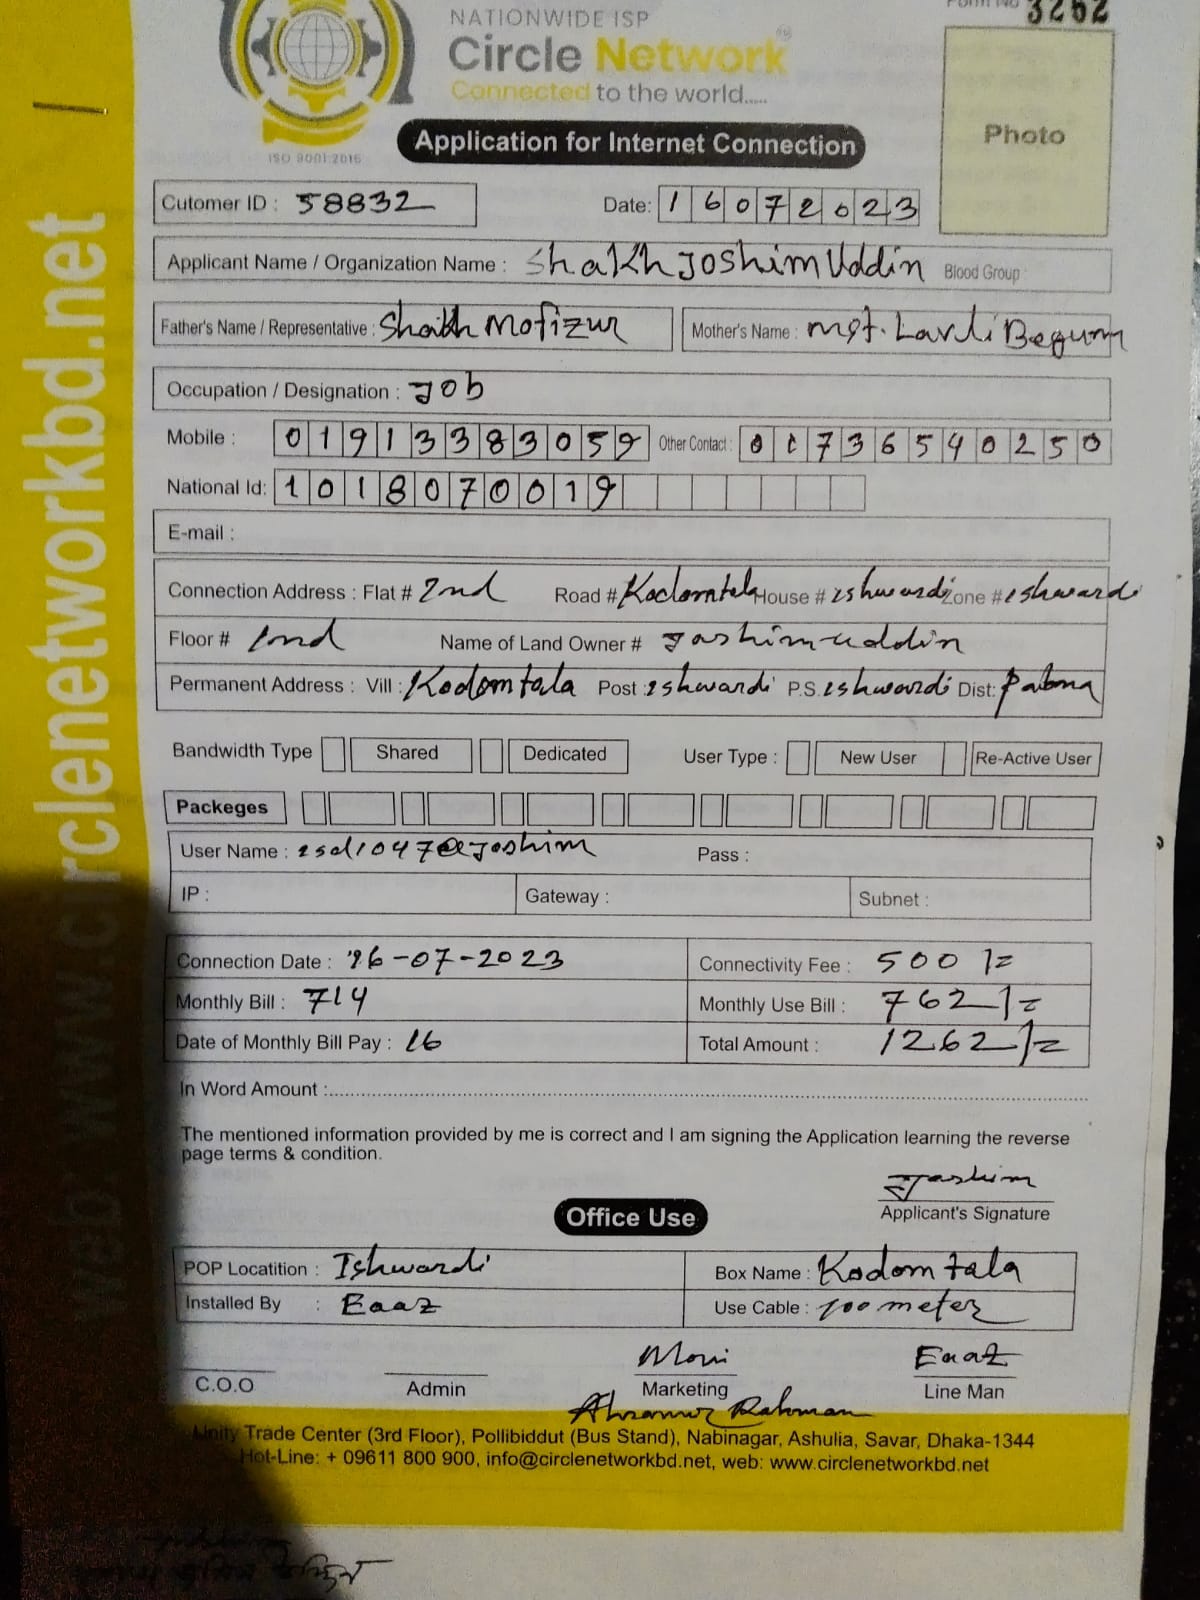 Form No 3262
NATIONWIDE ISP
Circle Network
Connected to the world.....
ISO 9001:2015
Application for Internet Connection
Photo
Cutomer ID : 58832 Date: 16072023
Applicant Name / Organization Name : Shakh Joshim Uddin Blood Group :
Father's Name / Representative : Shaikh Mofizur Mother's Name : Mst. Lavli Begum
Occupation / Designation : Job
Mobile : 01913383059 Other Contact : 01736540250
National Id: 1018070019
E-mail :
Connection Address : Flat # 2nd Road # Kodomtala House # ishwardi Zone # ishwardi
Floor # 2nd Name of Land Owner # Jashim uddin
Permanent Address : Vill : Kodomtala Post : ishwardi P.S. ishwardi Dist: Pabna
Bandwidth Type Shared Dedicated User Type : New User Re-Active User
Packeges
User Name : isd1047@joshim Pass :
IP : Gateway : Subnet :
Connection Date : 16-07-2023 Connectivity Fee : 500/=
Monthly Bill : 714 Monthly Use Bill : 762/=
Date of Monthly Bill Pay : 16 Total Amount : 1262/=
In Word Amount :
The mentioned information provided by me is correct and I am signing the Application learning the reverse
page terms & condition.
Jashim
Applicant's Signature
Office Use
POP Locatition : Ishwardi Box Name : Kodomtala
Installed By : Eaaz Use Cable : 100 meter
Moni Eaaz
C.O.O Admin Marketing Line Man
Rahman
Unity Trade Center (3rd Floor), Pollibiddut (Bus Stand), Nabinagar, Ashulia, Savar, Dhaka-1344
Hot-Line: + 09611 800 900, info@circlenetworkbd.net, web: www.circlenetworkbd.net
web: www.circlenetworkbd.net